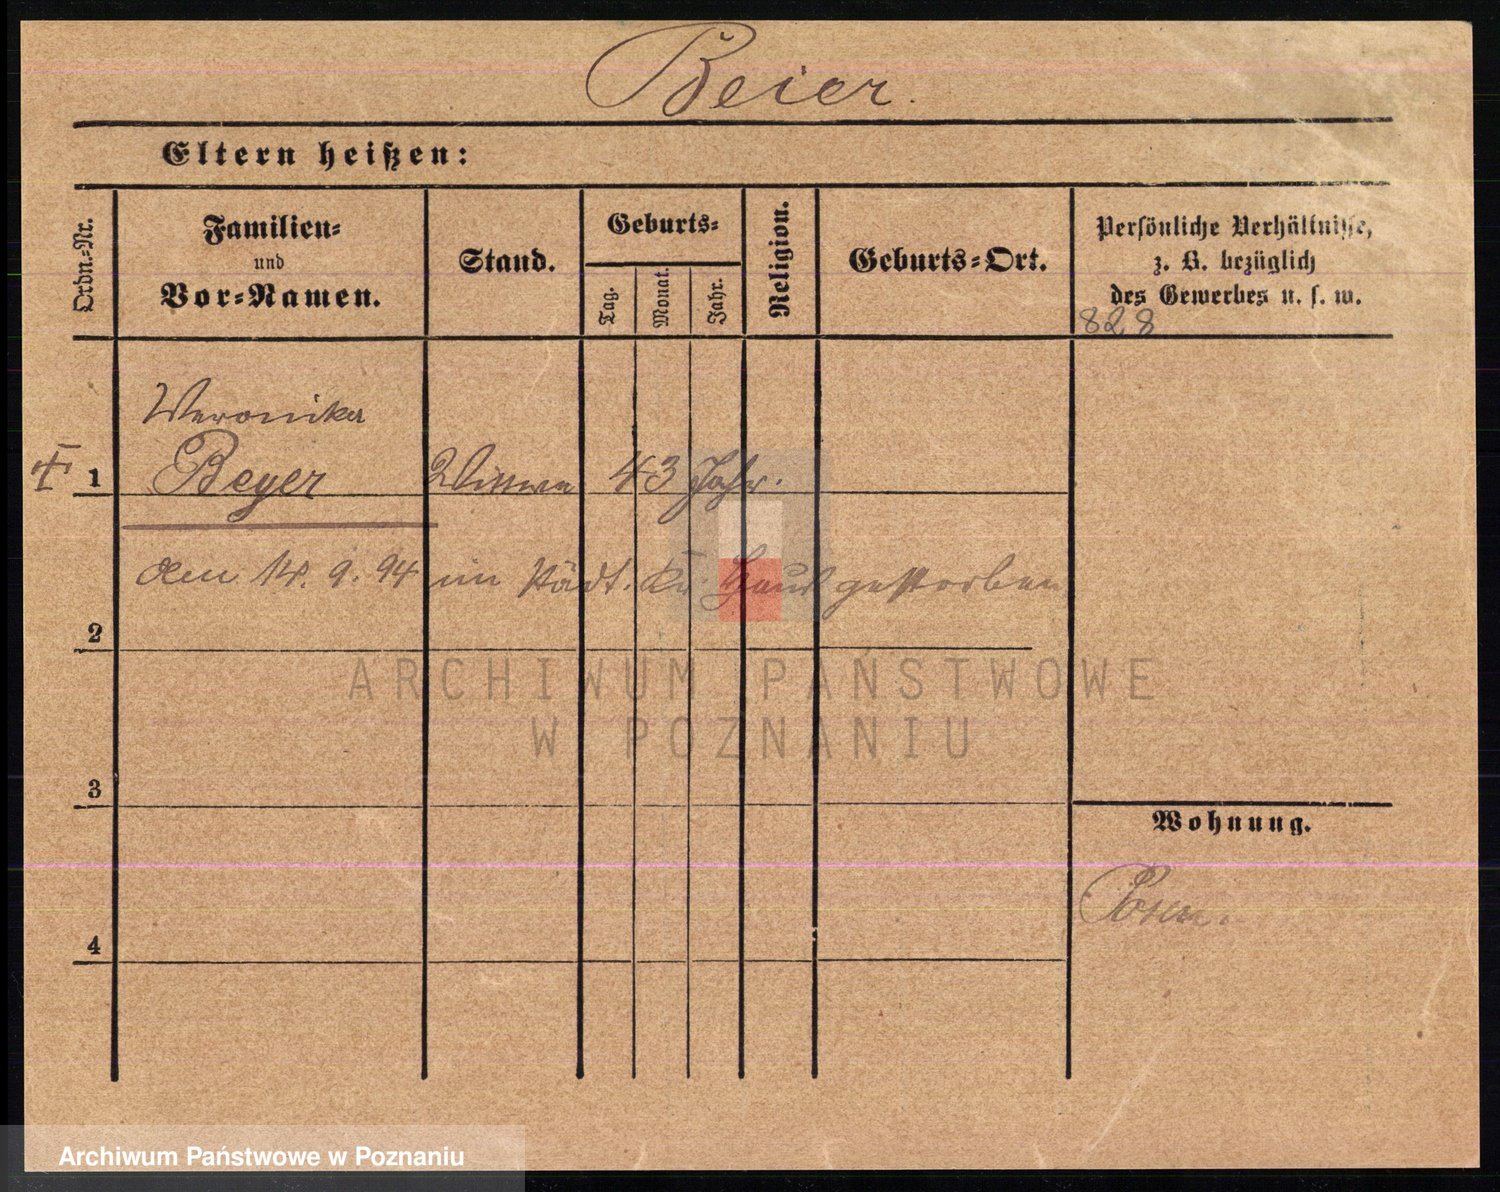 Beier.
Eltern heißen:
Ordn.-Nr.
Familien-
und
Vor-Namen.
Stand.
Geburts-
Tag.
Monat.
Jahr.
Religion.
Geburts-Ort.
Persönliche Verhältnisse,
z. B. bezüglich
des Gewerbes u. s. w.
828
Weronika
1 Beyer Wittwe 43 Jahr.
den 14. 9. 94 im städt. Kr. Haus gestorben
2
ARCHIWUM PAŃSTWOWE
W POZNANIU
3
Wohnung.
Posen.
4
Archiwum Państwowe w Poznaniu